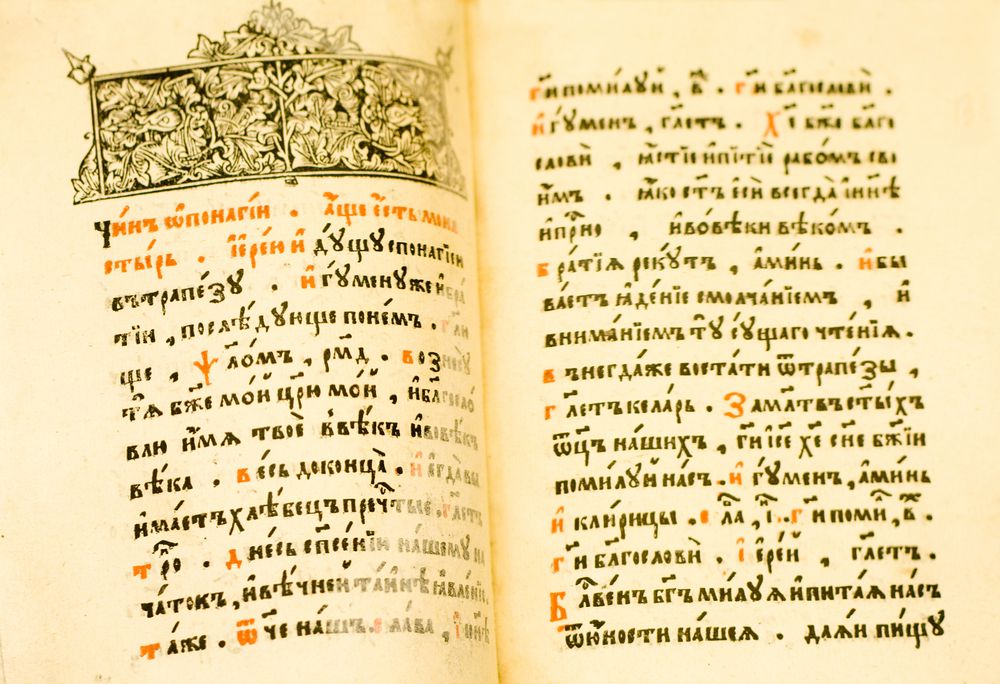 Чи́нъ ѡ҆ понагі́и . а҆́ще е҆́сть мона
сты́рь . і҆ере́и и҆дꙋ́щꙋ с понагі́еи
въ трапе́зꙋ . и҆гꙋ́менꙋ же и҆ бра́
тїи , послѣ́дꙋюще по не́мъ . гл҃и
ще , ѱало́мъ , рм҃д . вознесꙋ́
тѧ бж҃е мо́й цр҃ю мо́й , и҆ бл҃госло
влю и҆́мѧ твоѐ в вѣ́къ и҆ во вѣ́къ
вѣ́ка . ве́сь до конца̀ . и҆ е҆гда̀ вы
и҆ма́етъ хлѣ́бецъ пречⷭ҇тые , гл҃етъ
тро . дне́сь сп҃се́нїи на́шемꙋ на
ча́токъ , и҆ вѣ́чнеи та́инѣ ꙗ҆вле́нїе .
та́же . ѿ҆че на́шъ . сла́ва , і҆ ны́нѣ
гдⷭ҇и поми́лꙋй , в҃ . гдⷭ҇и бл҃гослови̂ .
и҆гꙋ́менъ , гл҃етъ . хе҃ бж҃е бл҃го
слови̂ , ꙗ҆́стїе и҆ питїѐ рабо́мъ сво
и҆́мъ . ꙗ҆́ко ст҃ъ е҆сѝ всегда̀ и҆ нн҃ѣ
и҆ прⷭ҇но , и҆ во вѣ́ки вѣ́комъ .
бра́тїѧ рекꙋ́тъ , а҆ми́нь . и҆ бы
ва́етъ ꙗ҆де́нїе с молча́нїемъ , и҆
внима́нїемъ тꙋ̀ сꙋ́щаго чте́нїѧ .
внегда́ же воста́ти ѿ трапе́зы ,
гл҃етъ кела́рь . За мл҃твъ ст҃ы́хъ
ѿц҃ъ на́шихъ , гдⷭ҇и і҆се҃ хе҃ сн҃е бж҃їи
поми́лꙋй на́съ . и҆гꙋ́менъ , а҆ми́нь
и҆ кли́рицы . сла́ , і҆ . гдⷭ҇и поми́ , в҃ .
гдⷭ҇и бл҃гослови̂ . і҆ере́й , гл҃етъ .
Бл҃ве́нъ бг҃ъ ми́лꙋѧ и҆ пита́ѧ на́съ
ѿ ю҆́ности на́шеѧ . даѧ́и пи́щꙋ